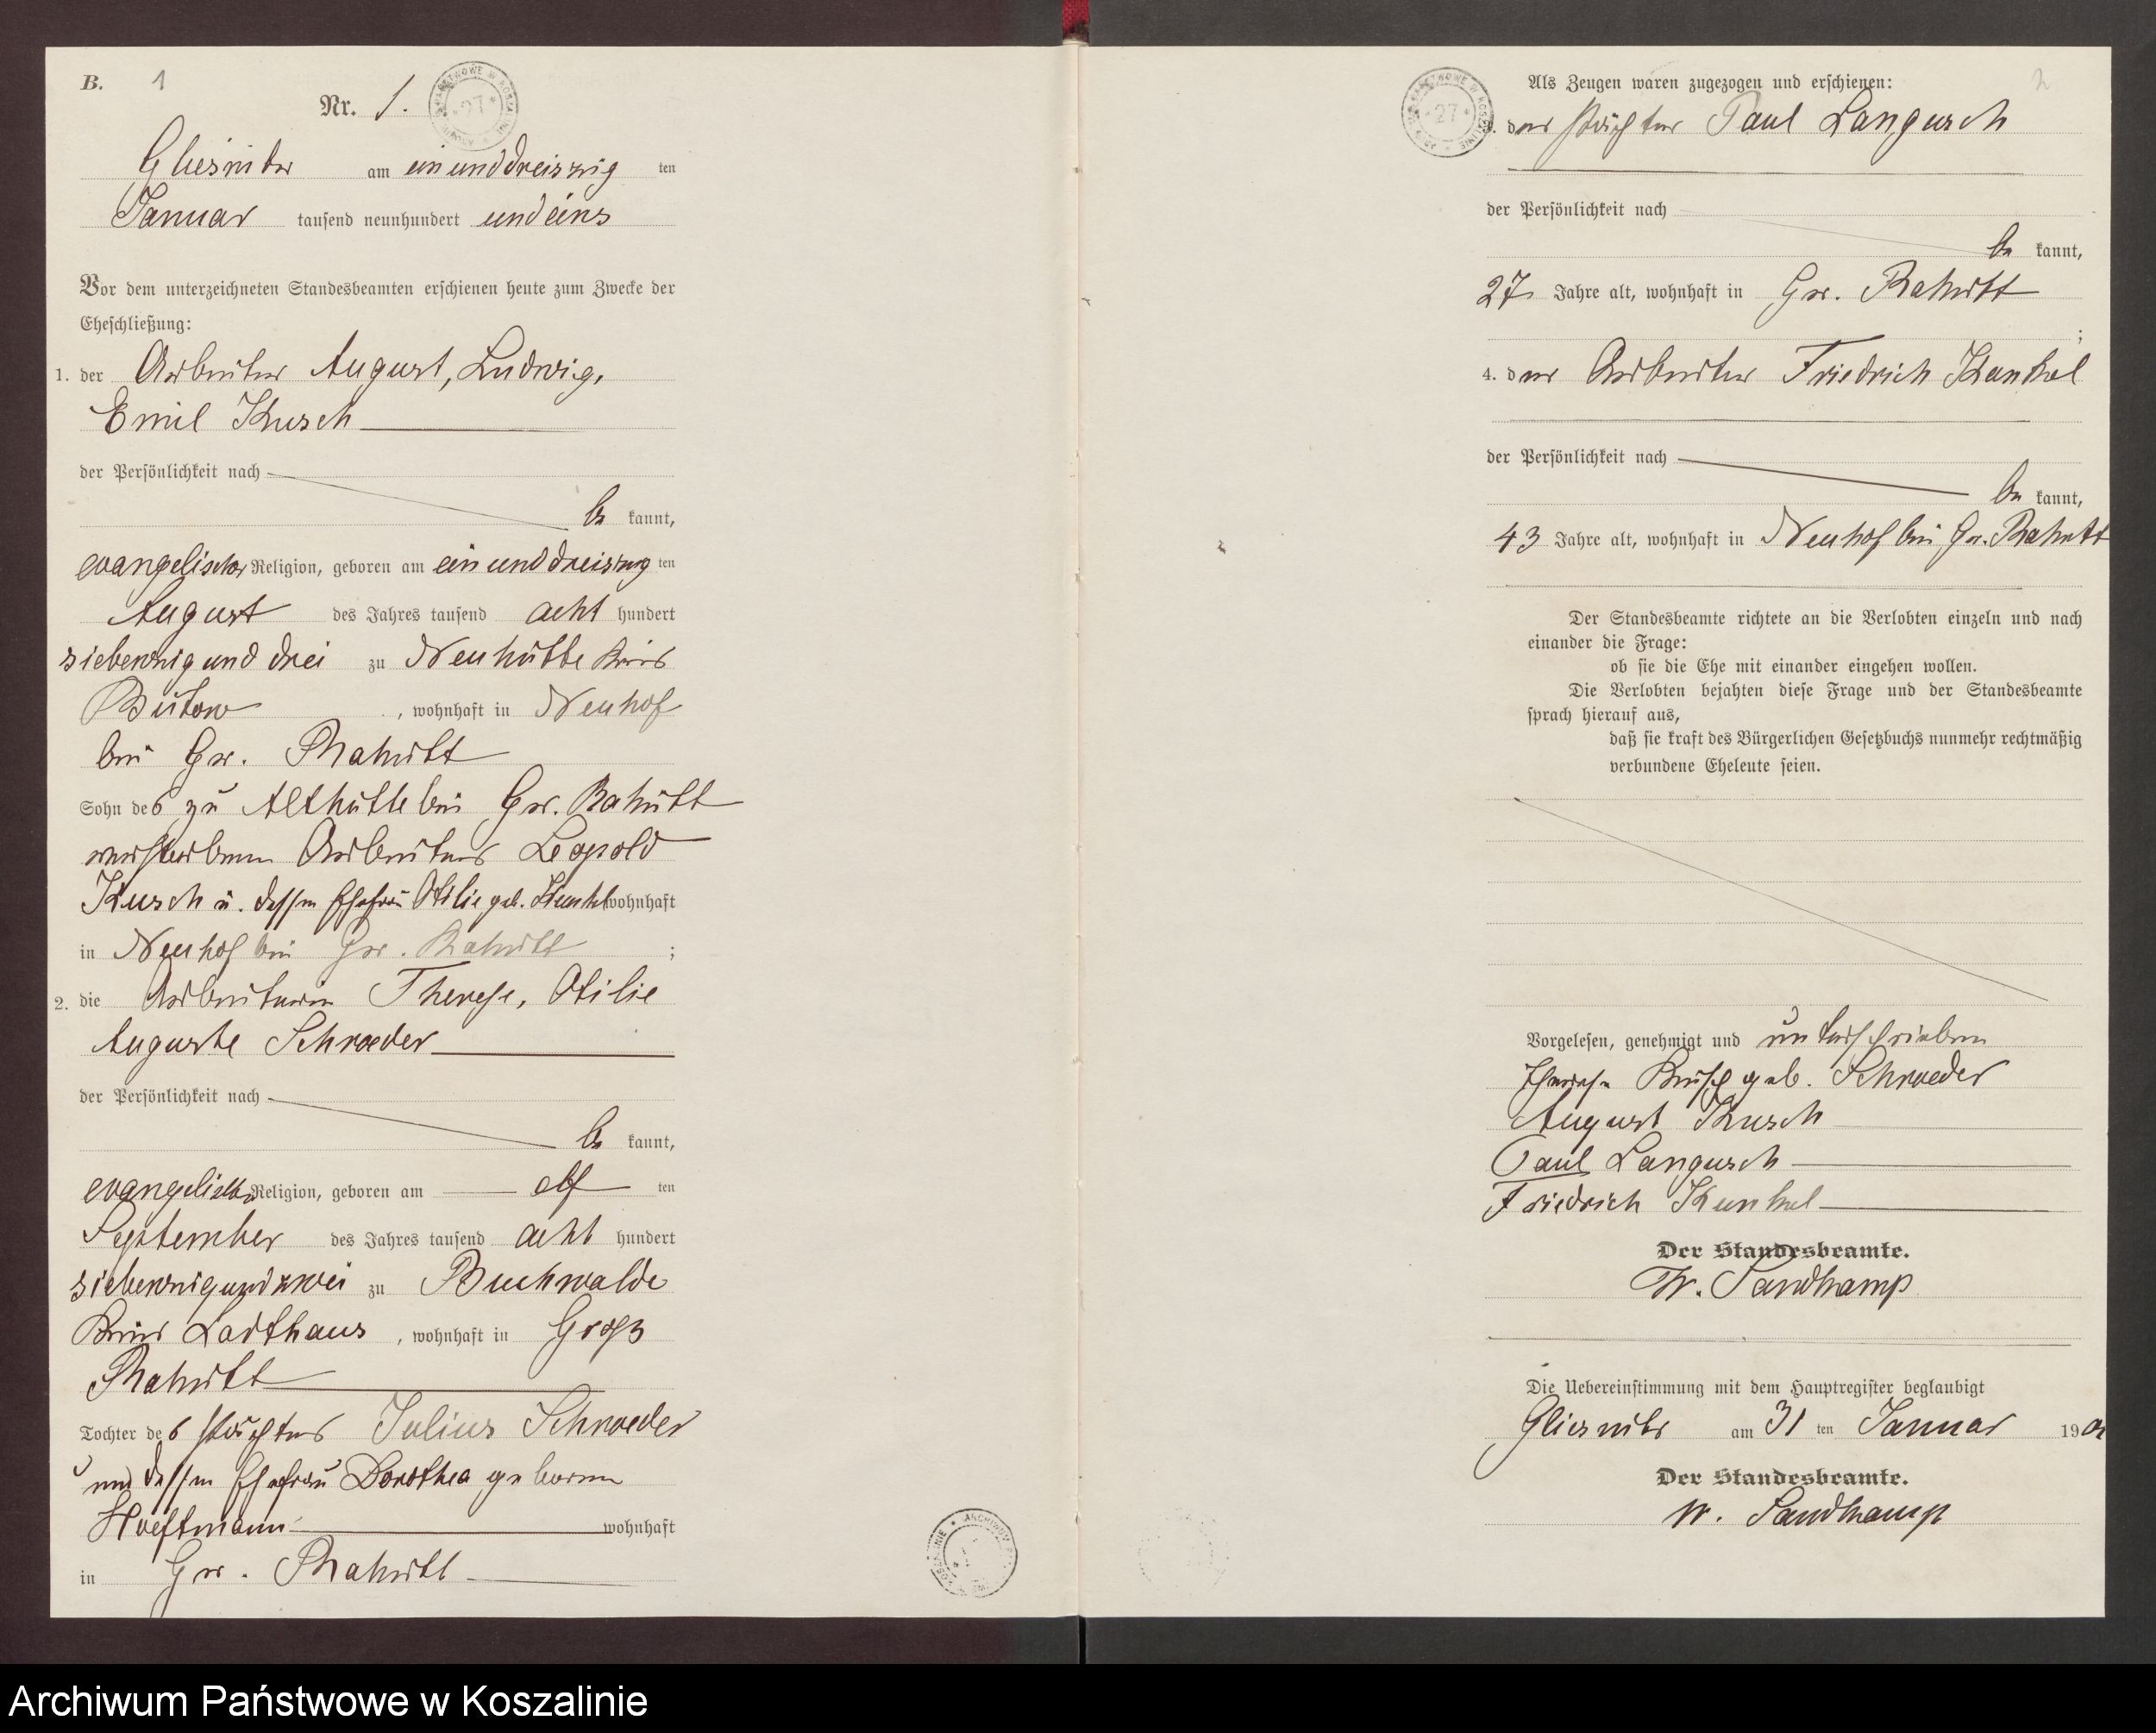 B. 1
Nr. 1.
Gliesnitz am einunddreiszig ten
Januar tausend neunhundert und eins
Vor dem unterzeichneten Standesbeamten erschienen heute zum Zwecke der
Eheschließung:
1. der Arbeiter August, Ludwig,
Emil Kusch
der Persönlichkeit nach
be kannt,
evangelischer Religion, geboren am einunddreiszig ten
August des Jahres tausend acht hundert
siebenzig und drei zu Neuhütte Kreis
Bütow, wohnhaft in Neuhof
bei Gr. Rakitt
Sohn des zu Althütte bei Gr. Rakitt
verstorbenen Arbeiters Leopold
Kusch u. dessen Ehefrau Otilie geb. wohnhaft
in Neuhof bei Gr. Rakitt ;
2. die Arbeiterin Therese, Otilie
Auguste Schroeder
der Persönlichkeit nach
be kannt,
evangelischer Religion, geboren am elf ten
September des Jahres tausend acht hundert
siebenzig und zwei zu Buchwalde
Kreis, wohnhaft in Groß
Rakitt
Tochter des Pächters Julius Schroeder
und dessen Ehefrau Dorothea geborene
Hoeftmann wohnhaft
in Gr. Rakitt
2
Als Zeugen waren zugezogen und erschienen:
3. der Pächter Paul Langusch
der Persönlichkeit nach
be kannt,
27 Jahre alt, wohnhaft in Gr. Rakitt
;
4. der Arbeiter Friedrich Kunkel
der Persönlichkeit nach
be kannt,
43 Jahre alt, wohnhaft in Neuhof bei Gr. Rakitt
Der Standesbeamte richtete an die Verlobten einzeln und nach
einander die Frage:
ob sie die Ehe mit einander eingehen wollen.
Die Verlobten bejahten diese Frage und der Standesbeamte
sprach hierauf aus,
daß sie kraft des Bürgerlichen Gesetzbuchs nunmehr rechtmäßig
verbundene Eheleute seien.
Vorgelesen, genehmigt und unterschrieben
Therese Kusch geb. Schroeder
August Kusch
Paul Langusch
Friedrich Kunkel
Der Standesbeamte.
W. Sandkamp
Die Uebereinstimmung mit dem Hauptregister beglaubigt
Gliesnitz am 31 ten Januar 1901
Der Standesbeamte.
W. Sandkamp
Archiwum Państwowe w Koszalinie